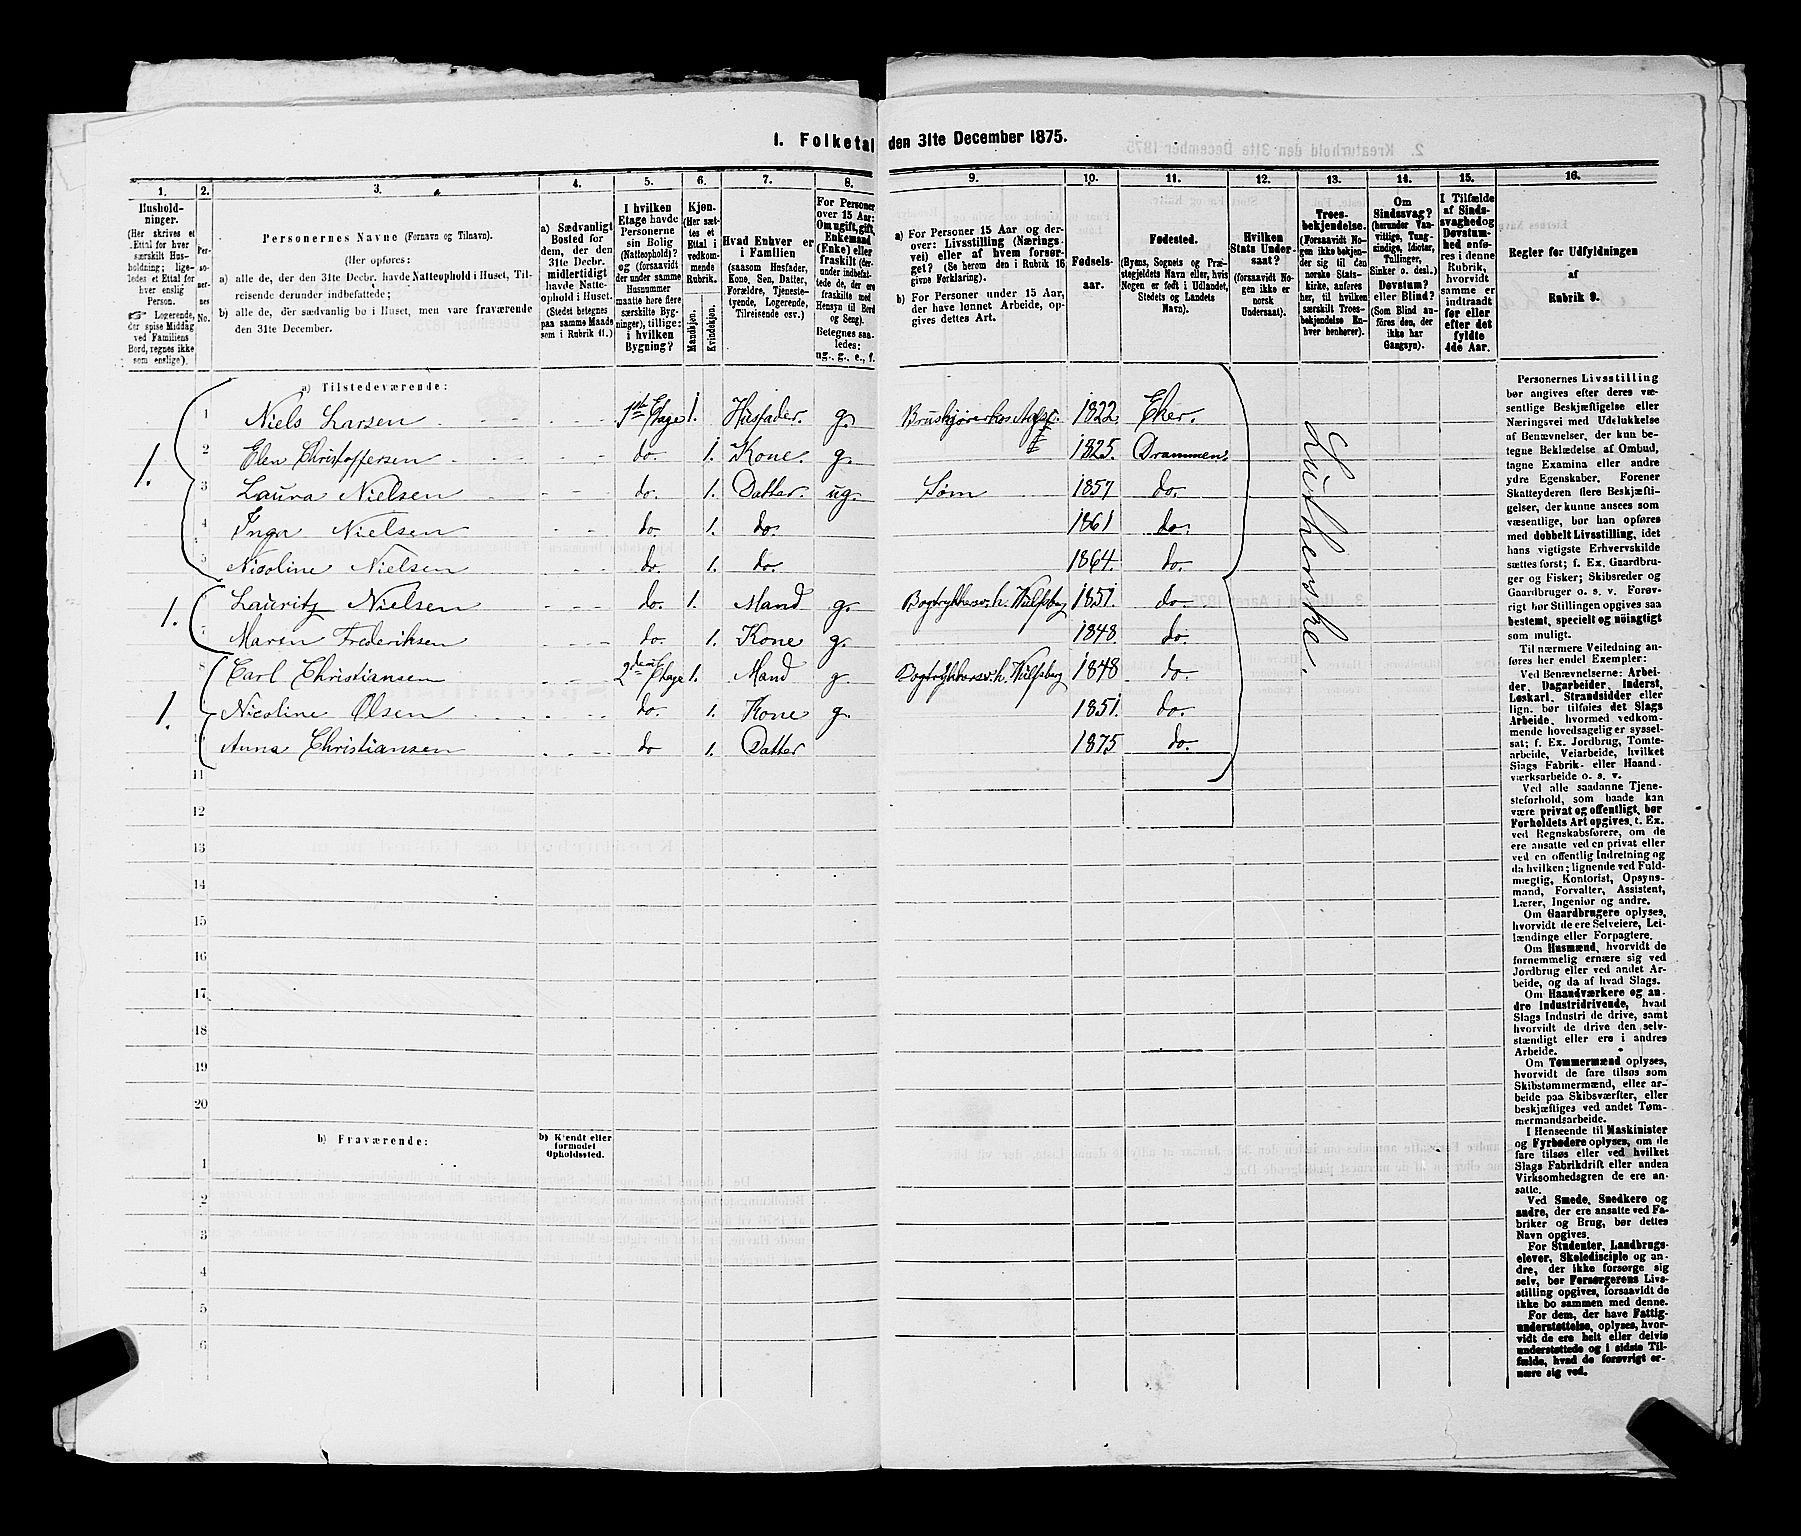 1. Folketal den 31te December 1875.
1. 2. 3. 4. 5. 6. 7. 8. 9. 10. 11. 12. 13. 14. 15. 16.
Hushold-
ninger.
(Her skrives et
Ettal for hver
særskilt Hus-
holdning; lige-
ledes et Ettal for
hver enslig
Person.
☞ Logerende,
der spise Middag
ved Familiens
Bord, regnes ikke
som enslige).
Per-
so-
ner-
nes
No.
Personernes Navne (Fornavn og Tilnavn).
(Her opføres:
a) alle de, der den 31te Decbr. havde Natteophold i Huset, Til-
reisende derunder indbefattede;
b) alle de, der sædvanlig bo i Huset, men vare fraværende
den 31te December.
a) Sædvanligt
Bosted for
dem, der den
31te Decbr.
midlertidigt
havde Natte-
ophold i Huset.
(Stedet betegnes
paa samme Maade
som i Rubrik 11.)
I hvilken
Etage havde
Personerne
sin Bolig
(Natteophold)?
og (forsaavidt
der under samme
Husnummer
maatte høre flere
særskilte Byg-
ninger), tillige:
i hvilken
Bygning?
Kjøn.
(Her sæt-
tes et
Ettal i
vedkom-
mende
Rubrik.
Mandkjøn.
Kvindekjøn.
Hvad Enhver er
i Familien
(saasom Husfader,
Kone, Søn, Datter,
Forældre, Tjeneste-
tyende, Logerende,
Tilreisende osv.)
For Personer
over 15 Aar:
Om ugift, gift,
Enkemand
(Enke) eller
fraskilt (der-
under indbefat-
tede de, der ere
fraskilte med
Hensyn til Bord
og Seng).
Betegnes saa-
ledes:
ug., g., e., f.
a) For Personer 15 Aar og der-
over: Livsstilling (Nærings-
vei) eller af hvem forsør-
get? (Se herom den i Rubrik 16
givne Forklaring).
b) For Personer under 15 Aar,
der have lønnet Arbeide, op-
gives dettes Art.
Fødsels-
aar.
Fødested.
(Byens, Sognets og Præ-
stegjeldets Navn eller, hvis
Nogen er født i Udlandet,
Stedets og Landets
Navn).
Hvilken
Stats Under-
saat?
(forsaavidt No-
gen ikke er
norsk
Undersaat).
Troes-
bekjendelse.
(Forsaavidt No-
gen ikke bekjen-
der sig til den
norske Stats-
kirke, anføres
her, til hvilken
særskilt Troes-
bekjendelse En-
hver henhører).
Om
Sindssvag?
(herunder Van-
vittige, Tung-
sindige, Idioter,
Tullinger,
Sinker o. desl.)
Døvstum?
eller Blind?
(Som Blind an-
føres den, der
ikke har
Gangsyn).
I Tilfælde
af Sinds-
svaghed og
Døvstum-
hed enfø-
res i denne
Rubrik,
hvorvidt
samme er
indtraadt
før eller
efter det
fyldte
4de Aar.
Regler for Udfyldningen
af
Rubrik 9.
a) Tilstedeværende:
1. 1 Niels Larsen 1ste Etage 1. Husfader g. 1822 Eker.
2 Elen Christoffersen do. 1. Kone g. 1825. Drammen.
3 Laura Nielsen do. 1. Datter. ug. Søm 1857 do.
4 Inga Nielsen do 1. do. 1861 do.
5 Nicoline Nielsen do. 1. do. 1864. do.
1. Lauritz Nielsen do. 1. Mand g. 1851. do.
7 Maren Frederiksen do. 1. Kone g. 1848 do
1. 8 Carl Christiansen 2den Etage 1. Mand g 1848 do
Nicoline Olsen do. 1. Kone g. 1851. do.
Anna Christiansen do 1. Datter 1875 do.
Lutherske.
11
12
13
14
15
16
17
18
19
20
b) Fraværende:
b) Kjendt eller
formodet
Opholdssted.
1
2
3
4
5
6
Personernes Livsstilling
bør angives efter deres væ-
sentlige Beskjæftigelse eller
Næringsvei med Udelukkelse
af Benævnelser, der kun be-
tegne Beklædelse af Ombud,
tagne Examina eller andre
ydre Egenskaber. Forener
Skatteyderen flere Beskjæfti-
gelser, der kunne ansees som
væsentlige, bør han opføres
med dobbelt Livsstilling, idet
hans vigtigste Erhvervskilde
sættes først; f. Ex. Gaardbru-
ger og Fisker; Skibsreder og
Gaardbruger o. s. v. Forøv-
rigt bør Stillingen opgives saa
bestemt, specielt og nøiagtigt
som muligt.
Til nærmere Veiledning an-
føres her endel Exempler:
Ved Benævnelserne: Arbei-
der, Dagarbeider, Inderst,
Løskarl, Strandsidder eller
lign. bør tilføies det Slags
Arbeide, hvormed vedkom-
mende hovedsagelig er syssel-
sat; f. Ex. Jordbrug, Tomte-
arbeide, Veiarbeide, hvilket
Slags Fabrik- eller Haand-
værksarbeide o. s. v.
Ved alle saadanne Tjene-
steforhold, som baade kan
være privat og offentligt, bør
Forholdets Art opgives, t. Ex.
ved Regnskabsførere, om de
ere ansatte ved en privat eller
ved en offentlig Indretning og
da hvilken; lignende ved Fuld-
mægtig, Kontorist, Opsyns-
mand, Forvalter, Assistent,
Lærer, Ingeniør og andre.
Om Gaardbrugere oplyses,
hvorvidt de ere Selveiere, Lei-
lændinge eller Forpagtere.
Om Husmænd, hvorvidt de
fornemmelig ernære sig ved
Jordbrug eller ved andet Ar-
beide, og da af hvad Slags.
Om Haandværkere og an-
dre Industridrivende, hvad
Slags Industri de drive, samt
hvorvidt de drive den selv-
stændigt eller ere i andres
Arbeide.
Om Tømmermænd oplyses,
hvorvidt de fare tilsøs som
Skibstømmermænd, eller ar-
beide paa Skibsværfter, eller
beskjæftiges ved andet Tøm-
mermandsarbeide.
I Henseende til Maskinister
og Fyrbødere oplyses, om de
fare tilsøs eller ved hvilket
Slags Fabrikdrift eller anden
Virksomhedsgren de ere an-
satte.
Ved Smede, Snedkere og
andre, der ere ansatte ved Fa-
briker og Brug, bør dettes
Navn opgives.
For Studenter, Landbrugs-
elever, Skoledisciple og an-
dre, der ikke forsørge sig
selv, bør Forsørgerens Livs-
stilling opgives, forsaavidt de
ikke bo sammen med denne.
For dem, der have Fattig-
understøttelse, oplyses, hvor-
vidt de ere helt eller delvis
understøttede og i sidste Til-
fælde, hvad de forøvrigt er-
nære sig ved.